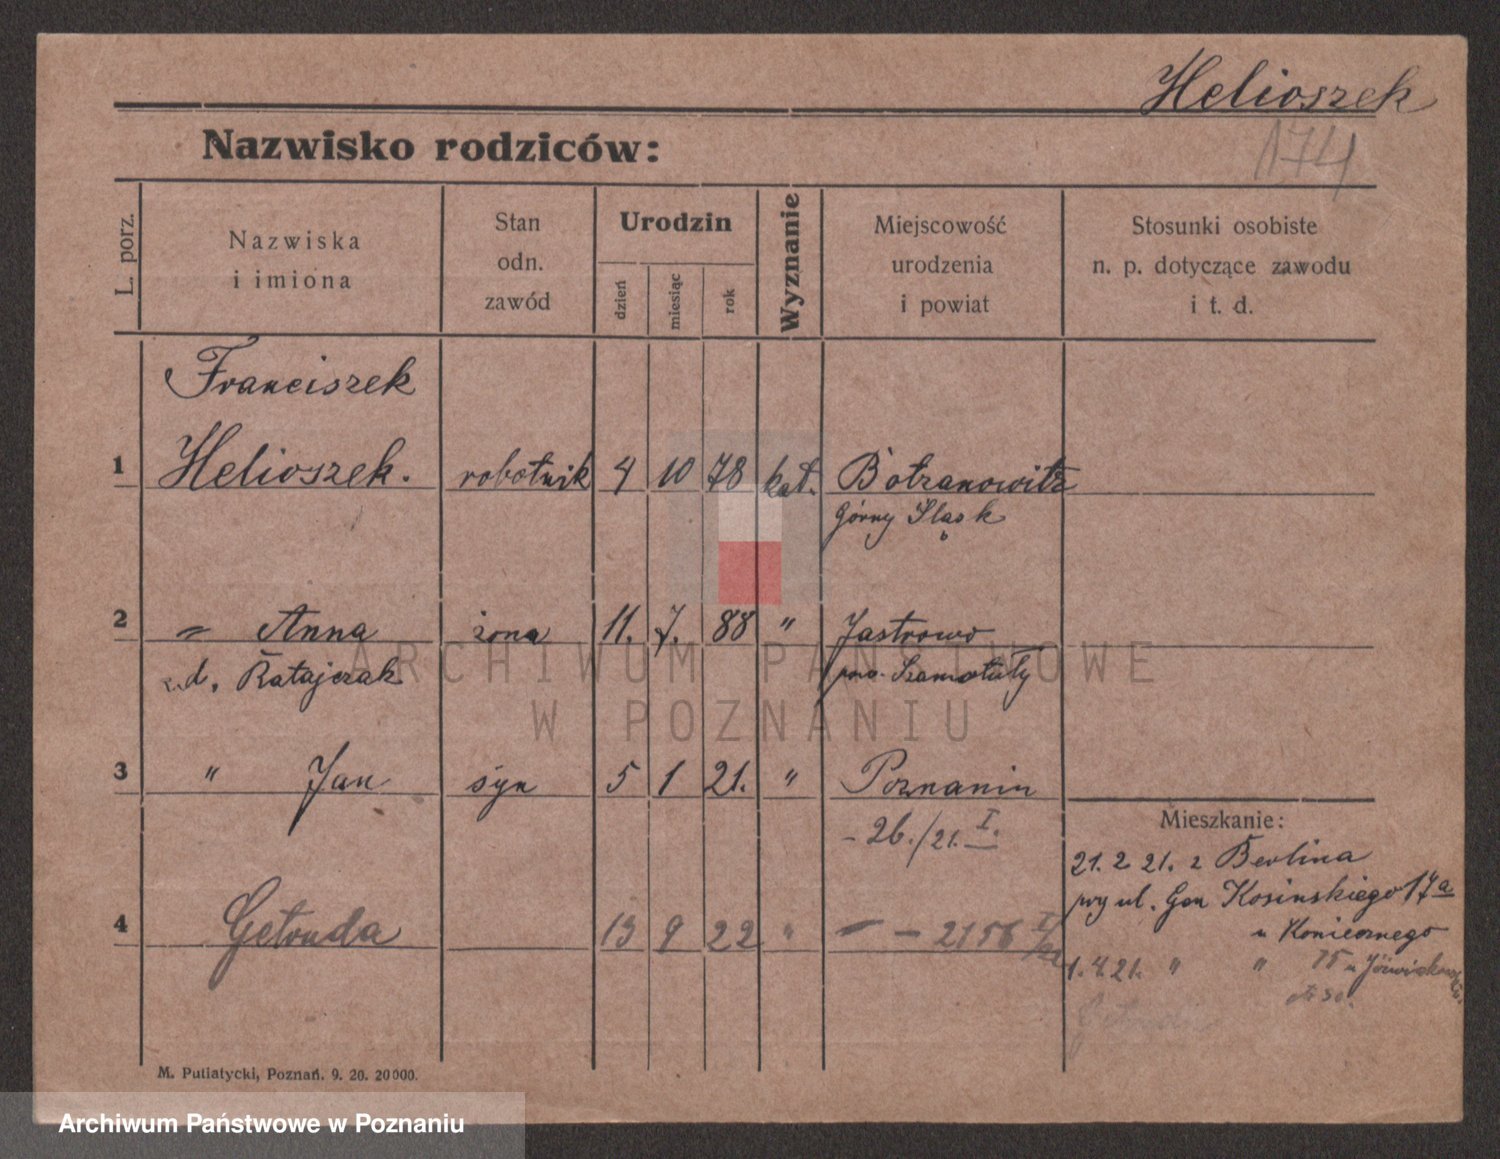 Helioszek
174
Nazwisko rodziców:
L. porz.
Nazwiska
i imiona
Stan
odn.
zawód
Urodzin
dzień
miesiąc
rok
Wyznanie
Miejscowość
urodzenia
i powiat
Stosunki osobiste
n. p. dotyczące zawodu
i t. d.
Franciszek
1 Helioszek. robotnik 4 10 78 kat. Botzanowitz
Górny Śląsk
2 " Anna żona 11. 7. 88 " Jastrowo
d. Ratajczak pow. Szamotuły
3 " Jan syn 5 1 21. " Poznaniu
- 26./21. I.
Mieszkanie:
21. 2 21. z Berlina
przy ul. Gen Kosinskiego 17a
u Koniecznego
4 Getruda 13 9 22 " " - 2156
1. 4. 21. " " 15 u
M. Putiatycki, Poznań. 9. 20. 20000.
ARCHIWUM PAŃSTWOWE
W POZNANIU
Archiwum Państwowe w Poznaniu